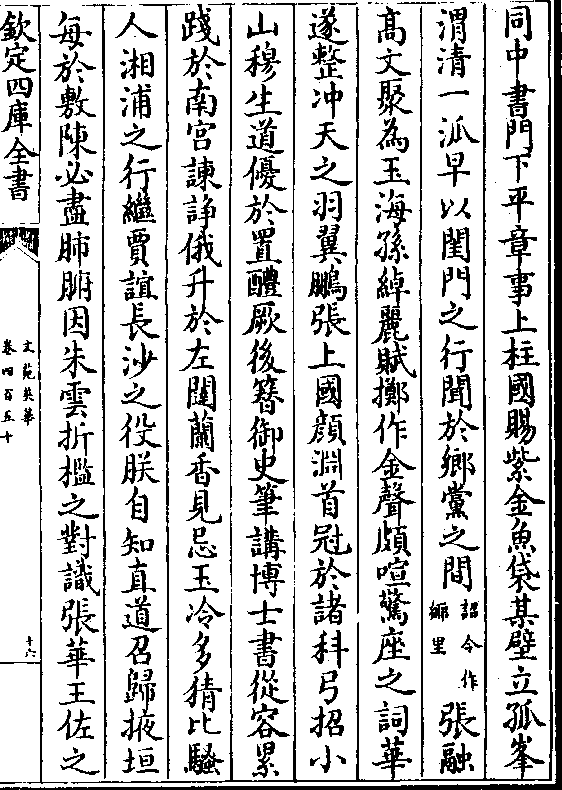 同中書門下平章事上柱國賜紫金魚袋某壁立孤峯
渭清一派早以閨門之行聞於鄉黨之間詔令作鄉里張融
高文聚為玉海孫綽麗賦擲作金聲頗喧驚座之詞華
遂整冲天之羽翼鵬張上國顔淵首冠於諸科弓招小
山穆生道優於置醴厥後簪御史筆講博士書從容累
踐於南宮諫諍俄升於左闥蘭香見忌玉冷多猜比騷
人湘浦之行繼賈誼長沙之役朕自知直道召歸掖垣
每於敷陳必盡肺腑因朱雲折檻之對識張華王佐之
欽定四庫全書
文苑英華
卷四百五十
十六